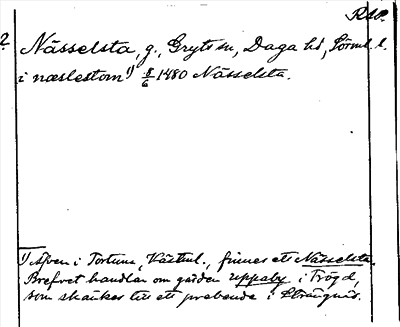 RAp.
? Nässelsta, g., Gryts sn, Daga hd, Sörml. l.
i næslestom 1) 8/6 1480 Nässelsta.
1) Äfven i Tortuna, Västml., finnes ett Nässelsta.
Brefvet handlar om gården uppaby i Trögd,
som skänkes till ett prebende i Strängnäs.